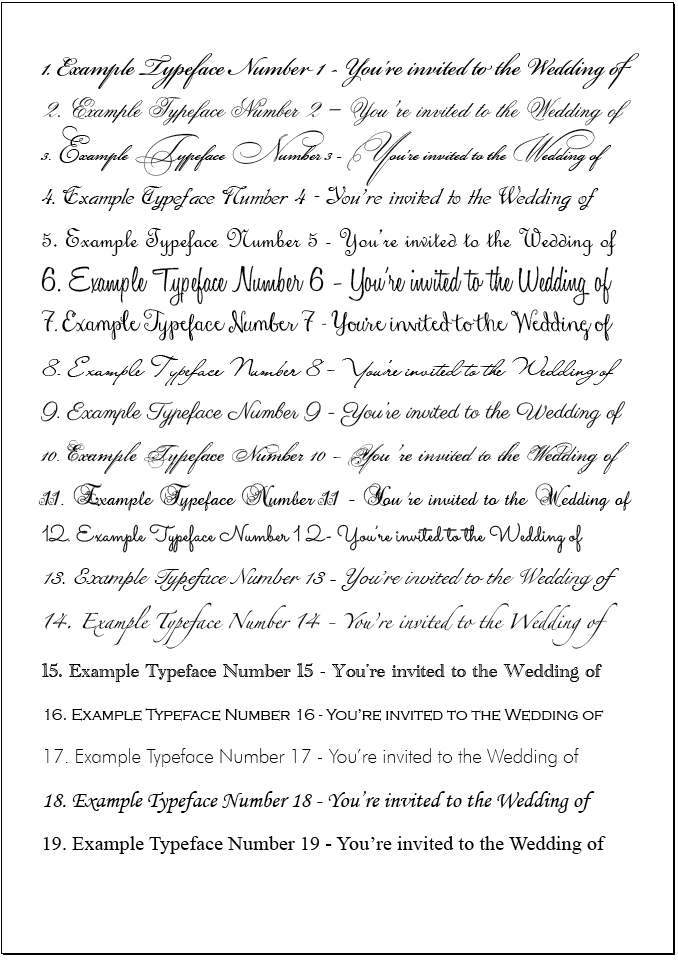 1. Example Typeface Number 1 - You're invited to the Wedding of
2. Example Typeface Number 2 – You're invited to the Wedding of
3. Example Typeface Number 3 - You're invited to the Wedding of
4. Example Typeface Number 4 - You're invited to the Wedding of
5. Example Typeface Number 5 - You're invited to the Wedding of
6. Example Typeface Number 6 - You're invited to the Wedding of
7. Example Typeface Number 7 - You're invited to the Wedding of
8. Example Typeface Number 8 - You're invited to the Wedding of
9. Example Typeface Number 9 - You're invited to the Wedding of
10. Example Typeface Number 10 - You're invited to the Wedding of
11. Example Typeface Number 11 - You're invited to the Wedding of
12. Example Typeface Number 12- You're invited to the Wedding of
13. Example Typeface Number 13 - You're invited to the Wedding of
14. Example Typeface Number 14 - You're invited to the Wedding of
15. Example Typeface Number 15 - You're invited to the Wedding of
16. Example Typeface Number 16 - You're invited to the Wedding of
17. Example Typeface Number 17 - You're invited to the Wedding of
18. Example Typeface Number 18 - You're invited to the Wedding of
19. Example Typeface Number 19 - You're invited to the Wedding of